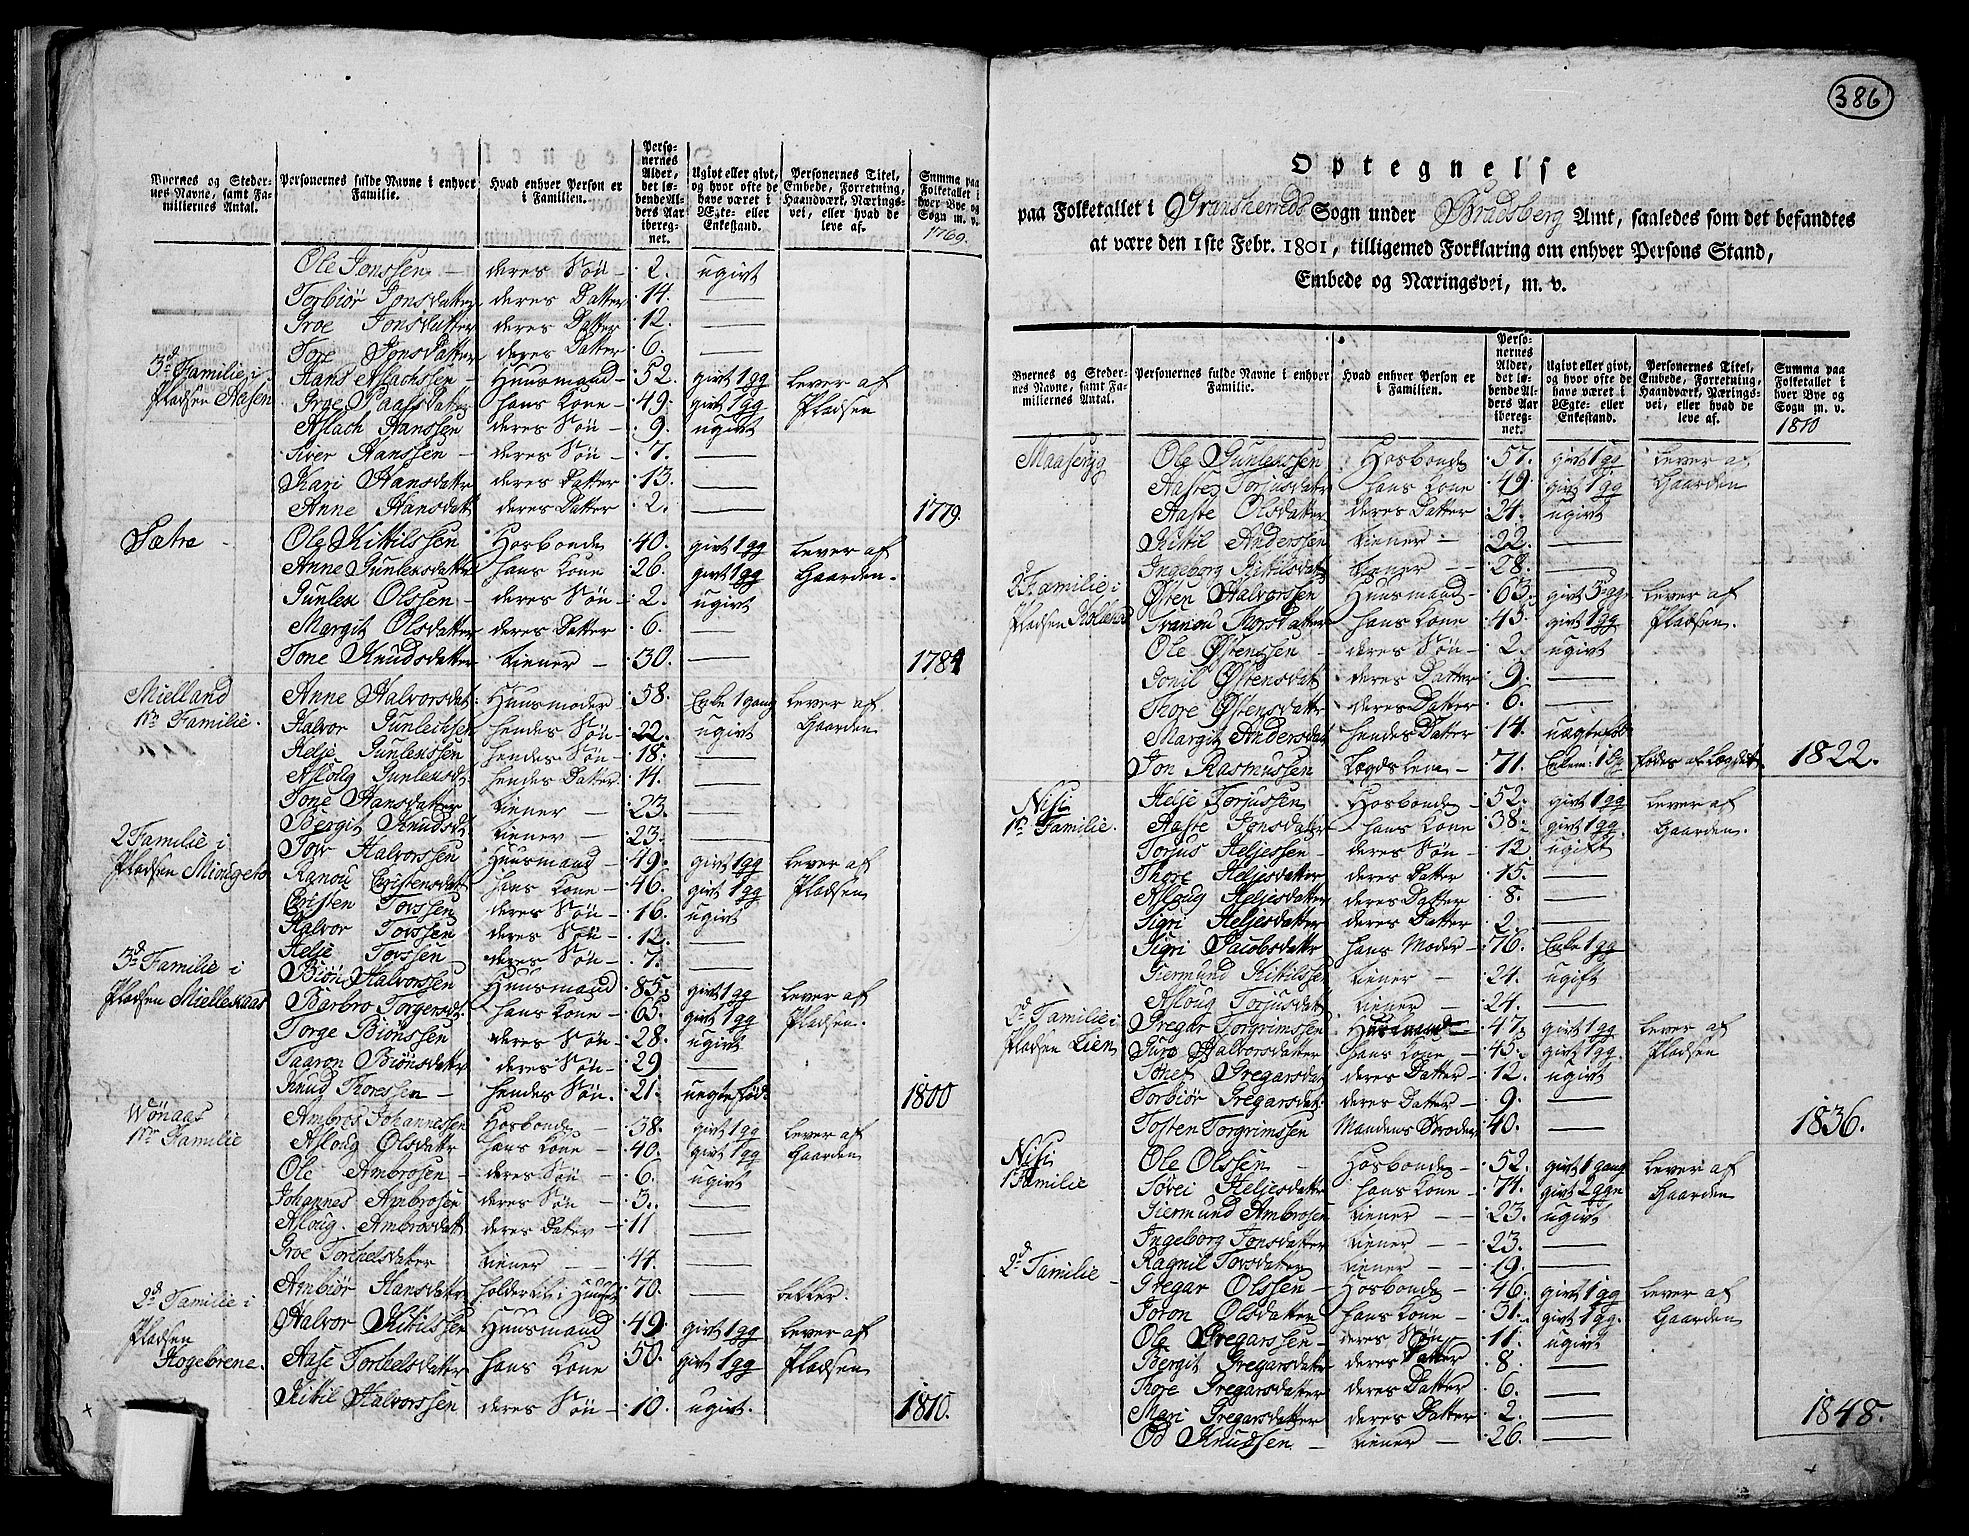 Byernes og Steder-
nes Navne, samt Fa-
miliernes Antal.
Personernes fulde Navne i enhver
Familie.
Hvad enhver Person er
i Familien.
Perso-
nernes
Alder,
det lø-
bende Al-
ders Aar
ibereg-
net.
Ugivt eller givt,
og hvor ofte de
have været i
Ægte- eller
Enkestand.
Personernes Titel,
Embede, Forretning,
Haandværk, Nærings-
vei, eller hvad de
leve af.
Summa paa
Folketallet i
hver Bye og
Sogn m. v.
1769.
Ole Jonssen - deres Søn - 2. ugivt
Torbiør Jonsdatter deres Datter 14. —
Groe Jonsdatter deres Datter 12. —
Tore Jonsdatter deres Datter 6. —
3d Familie i Hans Aslachssen - Huusmand - 52. givt 1 gg lever af
Pladsen Aasen Groe Paalsdatter hans Kone - 49. givt 1 gg Pladsen
Aslach Hanssen deres Søn - 9. ugivt
Siver Hanssen - deres Søn - 7. —
Kari Hansdattr deres Datter 13. —
Anne Hansdatt deres Datter 2. — 1779.
Sætre - Ole Kittilssen Hosbonde 40. givt 1 gg lever af
Anne Gunlexsdattr hans Kone 26. givt 1 gg Gaarden.
Gunlex Olssen - deres Søn - 2. ugivt
Margit Olsdatter deres Datter 6. —
Tone Knudsdatter tiener - 30. — 1784
Mielland Anne Halvorsdat. Huusmoder 58. Enke 1 gang lever af
1ste Familie. Halvor Gunlechssen hendes Søn - 22. ugivt Gaarden
Helje Gunlexssen hendes Søn - 18. —
Asloug Gunlexsdt hendes Datter 14. —
Tone Hansdatter tiener - 23. —
Bergit Knudsdt tiener - 23. —
2 Familie i Tov Halvorssen Huusmand - 49. givt 1 gg lever af
Pladsen Ranou Cristensdatt hans Kone - 46. givt 1 gg Pladsen
Cristen Tovssen deres Søn - 16. ugivt
Halvor Tovssen deres Søn - 12. —
Helje Tovssen deres Søn - 7. —
3d Familie i Biøn Halvorssen Huusmand 85. givt 1 gg lever af
Pladsen Barbro Torgersdt hans Kone - 65. givt 1 gg Pladsen.
Torge Biønssen deres Søn - 28. ugivt
Taaron Biønsdatter deres Søn - 29 —
Knud Thoressen - hendes Søn. 21. uegte fød 1800
Wønaas Ambros Johannessen Hosbonde - 38. givt 1 gg lever af
1ste Familie Asloug Olsdattr hans Kone - 40. givt 1 gg Gaarden
Ole Ambrosen - deres Søn - 6. ugivt
Johannes Ambrosen deres Søn - 3. —
Asloug Ambrosdatt deres Datter - 11 —
Groe Torchelsdatter tiener - 44. —
2d Familie i Ambiør Hansdattr holder til i Huuset 70. — betler.
Pladsen Halvor Kittilssen Huusmand 49. givt 1 gg lever af
Hogebrene. Aase Torchelsdatter hans Kone 50. givt 1 gg Pladsen
Kittil Halvorssen deres Søn - 10. ugivt. 1810.
386
Optegnelse
paa Folketallet i Gransherreds Sogn under Bradsberg Amt, saaledes som det befandtes
at være den 1ste Febr. 1801, tilligemed Forklaring om enhver Persons Stand,
Embede og Næringsvei, m. v.
Byernes og Steder-
nes Navne, samt Fa-
miliernes Antal.
Personernes fulde Navne i enhver
Familie.
Hvad enhver Person er
i Familien.
Perso-
nernes
Alder,
det lø-
bende Al-
ders Aar
ibereg-
net.
Ugivt eller givt,
og hvor ofte de
have været i
Ægte- eller
Enkestand.
Personernes Titel,
Embede, Forretning,
Haandværk, Nærings-
vei, eller hvad de
leve af.
Summa paa
Folketallet i
hver Bye og
Sogn m. v.
1810
Maaseryg Ole Gunlexssen Hosbonde 57. givt 1 gg lever af
Aaste Torjusdatr hans Kone 49. givt 1 gg Gaarden
Aaste Olsdatter deres Datter 21. ugivt
Kittil Anderssen tiener - 22. —
Ingeborg Kittilsdatr tiener - 28. —
2d Familie i Østen Halvorssen Huusmand - 63. givt 3 ggr lever af
Pladsen Svanou Thorsdatter hans Kone 45. givt 1 gg Pladsen.
Ole Østenssen - deres Søn - 2. ugivt
Gonil Østensdat deres Datter 9. —
Thore Østensdattr deres Datter 6. —
Margit Andersdat hendes Datter 14. uegte fød
Jon Rasmussen Legdslem - 71. Enkem: 1 gg fødes af Legdet 1822.
Nisi Helje Torjussen Hosbonde - 52. givt 1 gg lever af
1ste Familie. Aaste Jonsdatter hans Kone 38. givt 1 gg Gaarden.
Torjus Heljessen - deres Søn - 12 ugift
Thore Heljesdatter deres Datter 15. —
Asloug Heljesdatter deres Datter 8. —
Sigri Heljesdatter deres Datter 2. —
Sigri Jacobsdattr hans Moder - 76. Enke 1 gg
Giermund Kittilssen tiener - 24. ugift
Asloug Torjusdatr tiener - 24. —
2d Familie i Gregar Torgrimssen Huusmand - 47. givt 1 gg lever af
Pladsen Lien Guro Halvorsdatter hans Kone - 45. givt 1 gg. Pladsen
Tonet Gregarsdat deres Datter - 12. ugivt
Torbiør Gregarsdat. deres Datter - 9. —
Tosten Torgrimssen Mandens Broder 40. — 1836.
Nisi Ole Olssen - Hosbonde - 52. givt 1 gang lever af
1 Familie Søvei Heljesdatter hans Kone - 74. givt 2 ggr Gaarden
Giermund Ambrosen tiener - 23. ugivt
Ingeborg Jonsdatter tiener - 23. —
Ragnil Tovsdatter tiener - 19. —
2d Familie - Gregar Olssen - Hosbonde - 46. givt 1 gg lever af
Joron Olsdatter hans Kone - 31. givt 1 gg. Gaarden
Ole Gregarssen - deres Søn - 11. ugivt
Bergit Gregarsdatter deres Datter 8. —
Thore Gregarsdatter deres Datter 6. —
Mari Gregarsdatter deres Datter 2. — 1848.
Od Knudsen - tiener - 26. —